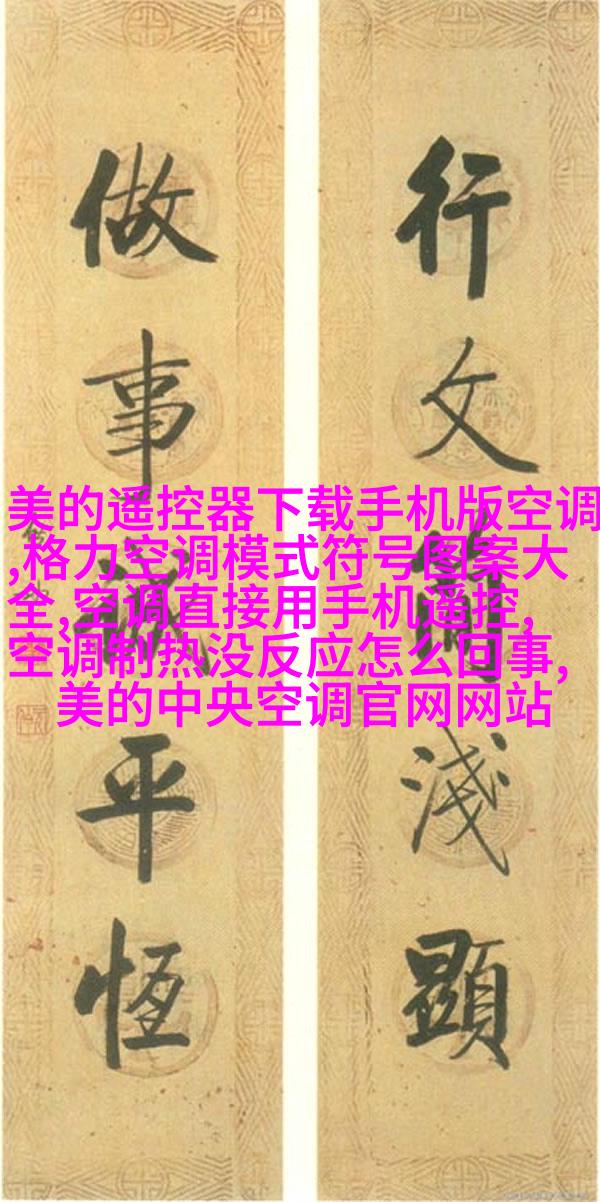 行文簡淺顯
做事誠平恆
美的遥控器下载手机版空调
,格力空调模式符号图案大
全,空调直接用手机遥控,
空调制热没反应怎么回事,
美的中央空调官网网站